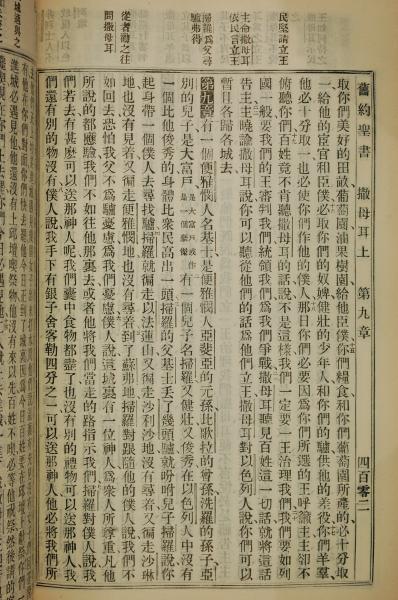 舊約聖書 撒母耳上 第九章 四百零二
民堅請立王
主命撒母耳
依民言立王
掃羅爲父尋
驢弗得
從者導之往
問撒母耳
取你們美好的田畝葡萄園油果樹園給他臣僕你們糧食和你們葡萄園所產的必十分取
一給他的宦官和臣僕必取你們的奴婢健壯的少年人和你們的驢供他的差役你們羊羣
他必十分取一也必使你們作他的僕人那日你們必要因爲你們所選的王呼籲主主卻不
俯聽你們百姓竟不肯聽撒母耳的話說不是這樣我們一定要一王治理我們我們要如列
國一般要我們的王審判我們統領我們爲我們爭戰撒母耳聽見百姓這一切話就將這話
告主主曉諭撒母耳說你可以聽從他們的話爲他們立王撒母耳對以色列人說你們可以
暫且各歸各城去
第九章有一個便雅憫人名基士是便雅憫人亞斐亞的元孫比歌拉的曾孫洗羅的孫子亞
別的兒子是大富戶是大富戶或作是一個豪傑有一個兒子名掃羅又健壯又俊秀在以色列人中沒有
一個比他俊秀的身體比衆民高出一頭掃羅的父基士丟了幾頭驢就吩咐兒子掃羅說你
起身帶一個僕人去尋找驢掃羅就徧走以法蓮山又徧走沙利沙地沒有尋着又徧走沙琳
地也沒有見着又徧走便雅憫地也沒有尋着到了蘇弗地掃羅對跟隨他的僕人說我們不
如回去恐怕我父不爲驢憂慮爲我們憂慮僕人說這城裏有一位神人爲衆人所尊重凡他
所說的都應驗我們不如往他那裏去或者他將我們當走的路指示我們掃羅對僕人說我
們若去有甚麽可以送那神人呢我們囊中食物都盡了也沒有別的禮物可以送那神人我
們還有別的物沒有僕人說我手下有銀子舍客勒四分之一可以送那神人他必將我們所